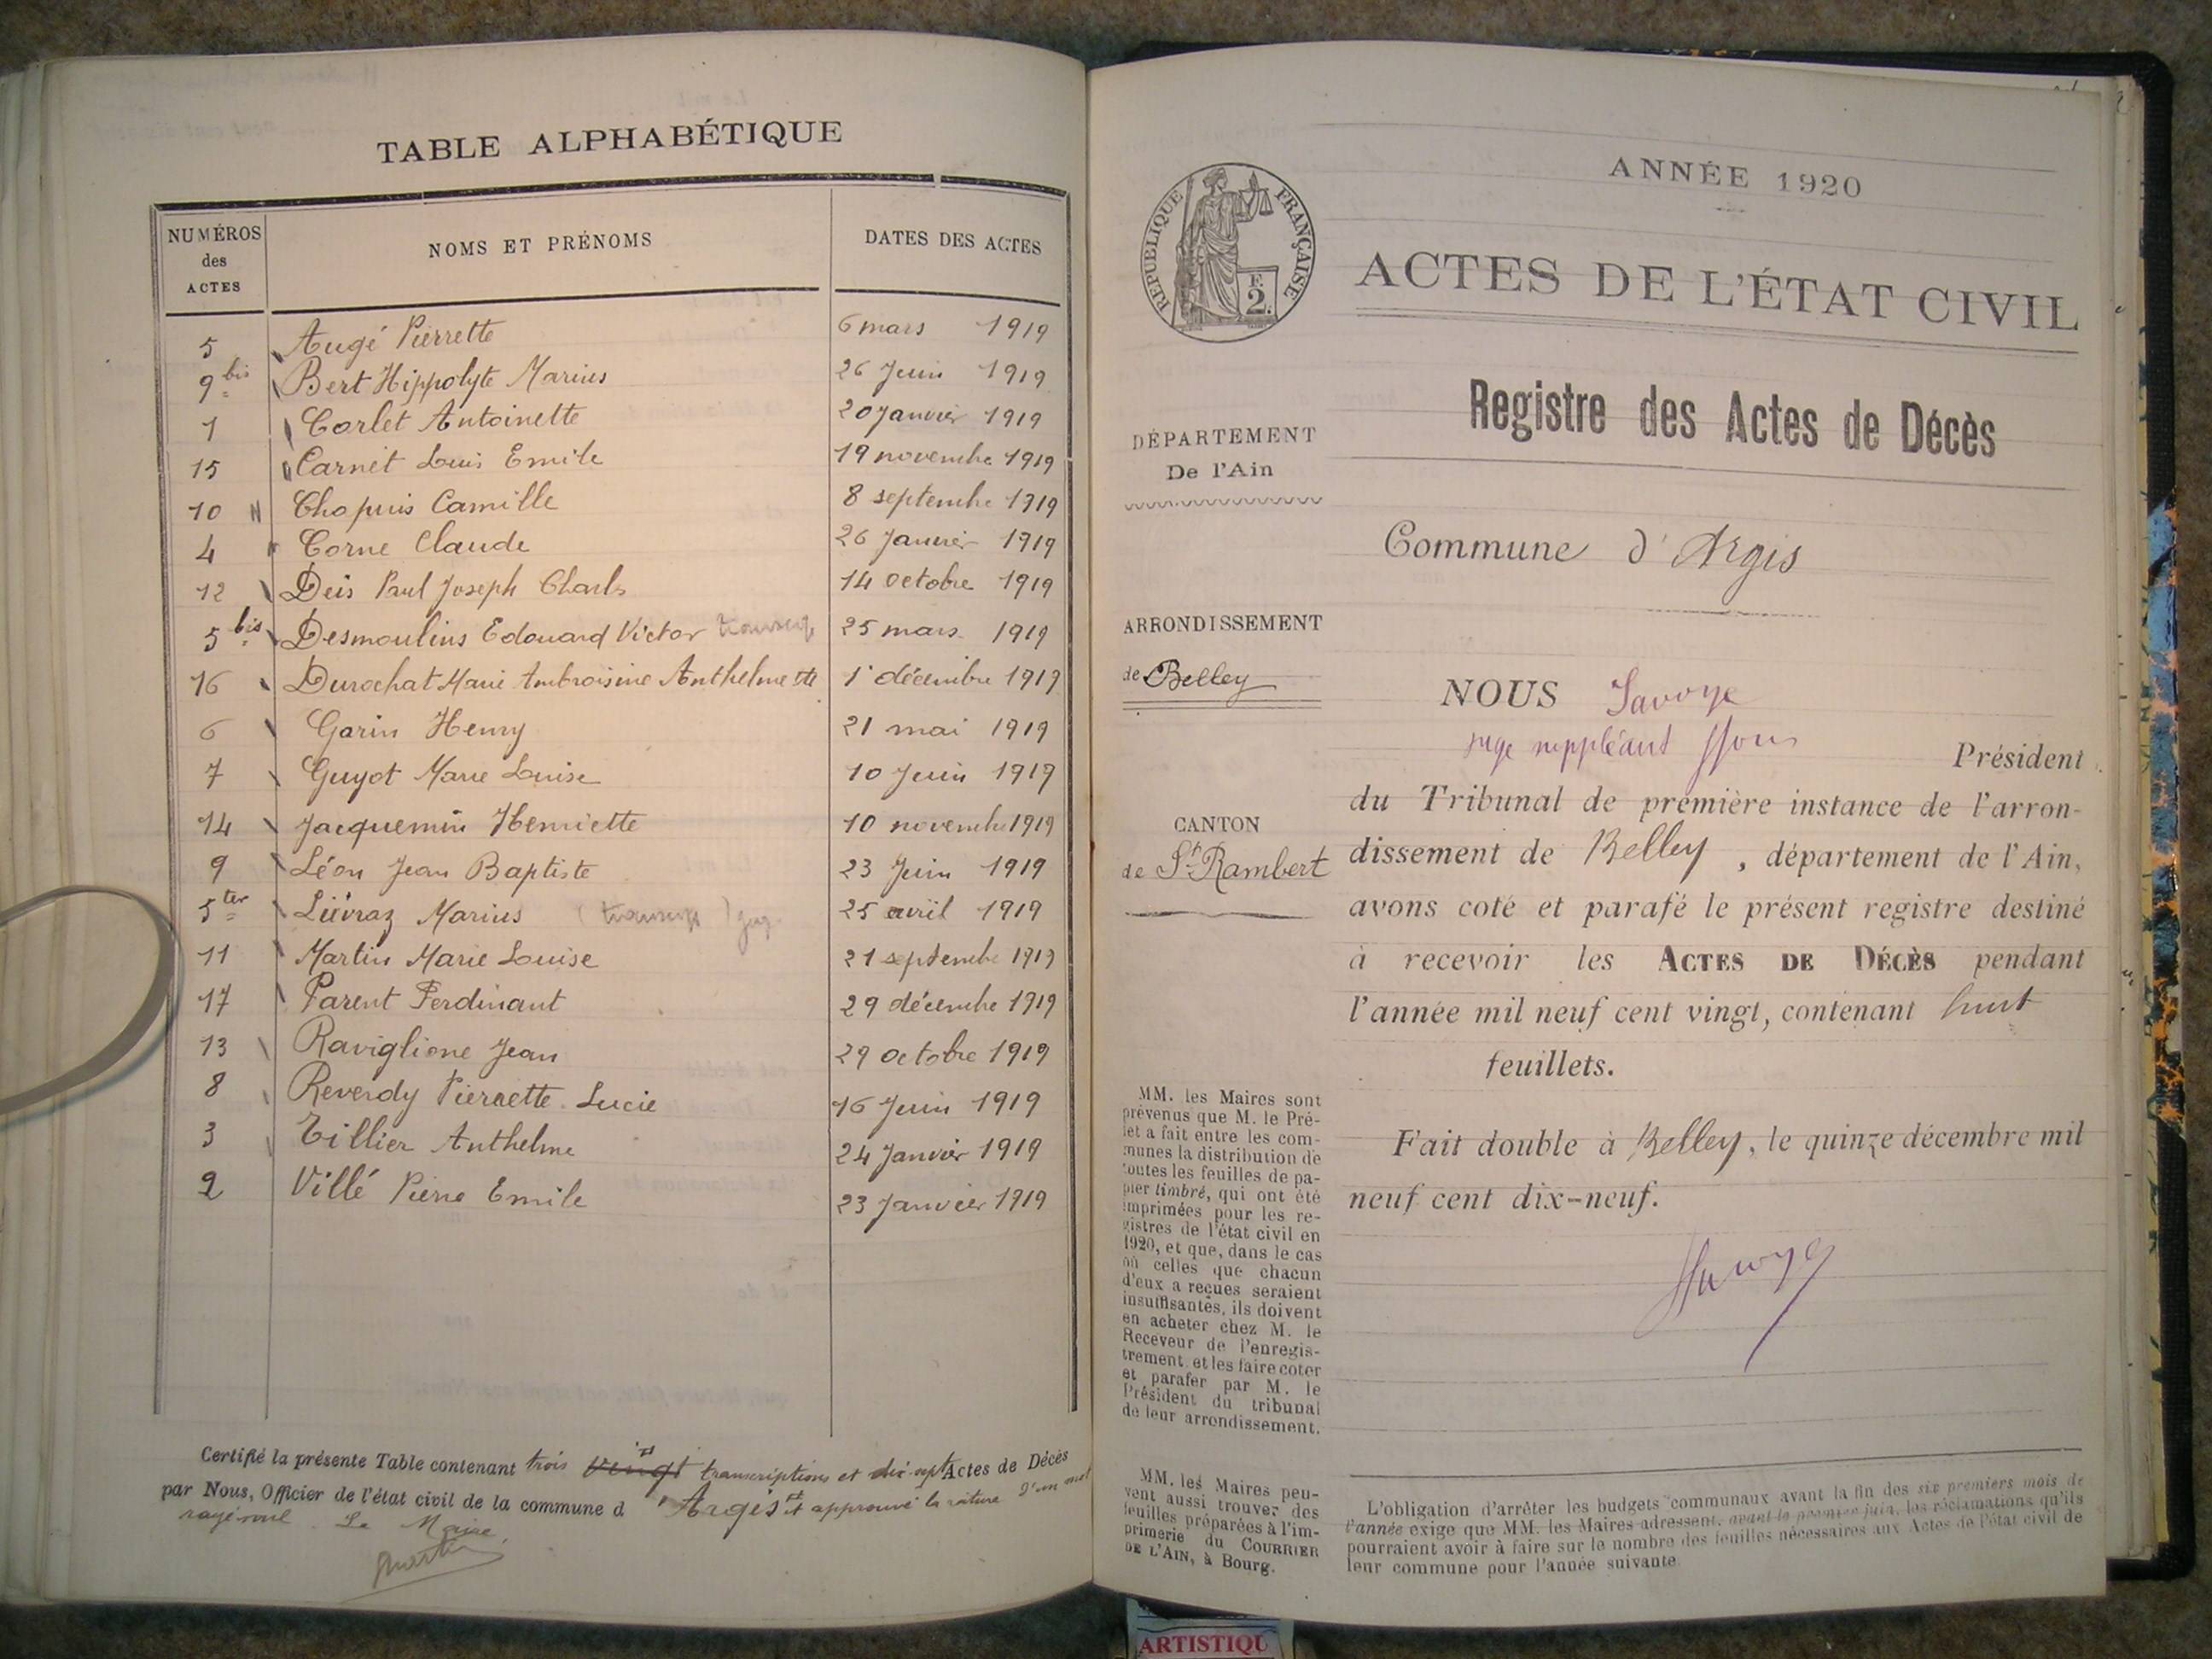 TABLE ALPHABÉTIQUE
NUMÉROS des ACTES NOMS ET PRÉNOMS DATES DES ACTES
5 Augé Pierrette 6 mars 1919
9 bis Bert Hippolyte Marius 26 Juin 1919
1 Corlet Antoinette 20 Janvier 1919
15 Carnet Louis Emile 19 novembre 1919
10 Chapuis Camille 8 septembre 1919
4 Corne Claude 26 Janvier 1919
12 Deis Paul Joseph Charles 14 octobre 1919
5 bis Desmoulins Edouard Victor 25 mars 1919
16 Durochat Marie Ambroisine Anthelmette 1er décembre 1919
6 Garin Henry 21 mai 1919
7 Guyot Marie Louise 10 Juin 1919
14 Jacquemin Henriette 10 novembre 1919
9 Léon Jean Baptiste 23 Juin 1919
5 ter Liévraz Marius 25 avril 1919
11 Martin Marie Louise 21 septembre 1919
17 Parent Ferdinant 29 décembre 1919
13 Raviglione Jean 29 octobre 1919
8 Reverdy Pierrette Lucie 16 Juin 1919
3 Tillier Anthelme 24 Janvier 1919
2 Villé Pierre Emile 23 Janvier 1919
Certifié la présente Table contenant trois vingt transcriptions et dix-sept Actes de Décès
par Nous, Officier de l'état civil de la commune d'Argis et approuvé la rature d'un mot
rayé nul. Le Maire,
Martin
ANNÉE 1920
RÉPUBLIQUE FRANÇAISE
F. 2.
ACTES DE L'ÉTAT CIVIL
Registre des Actes de Décès
DÉPARTEMENT
De l'Ain
Commune d'Argis
ARRONDISSEMENT
de Belley
CANTON
de St Rambert
NOUS Savoye
juge suppléant Président
du Tribunal de première instance de l'arron-
dissement de Belley, département de l'Ain,
avons coté et parafé le présent registre destiné
à recevoir les ACTES DE DÉCÈS pendant
l'année mil neuf cent vingt, contenant huit
feuillets.
Fait double à Belley, le quinze décembre mil
neuf cent dix-neuf.
Savoye
MM. les Maires sont
prévenus que M. le Pré-
fet a fait entre les com-
munes la distribution de
toutes les feuilles de pa-
pier timbré, qui ont été
imprimées pour les re-
gistres de l'état civil en
1920, et que, dans le cas
où celles que chacun
d'eux a reçues seraient
insuffisantes, ils doivent
en acheter chez M. le
Receveur de l'enregis-
trement et les faire coter
et parafer par M. le
Président du tribunal
de leur arrondissement.
MM. les Maires peu-
vent aussi trouver des
feuilles préparées à l'im-
primerie du COURRIER
DE L'AIN, à Bourg.
L'obligation d'arrêter les budgets communaux avant la fin des six premiers mois de
l'année exige que MM. les Maires adressent, avant le premier juin, les réclamations qu'ils
pourraient avoir à faire sur le nombre des feuilles nécessaires aux Actes de l'état civil de
leur commune pour l'année suivante.
ARTISTIQU